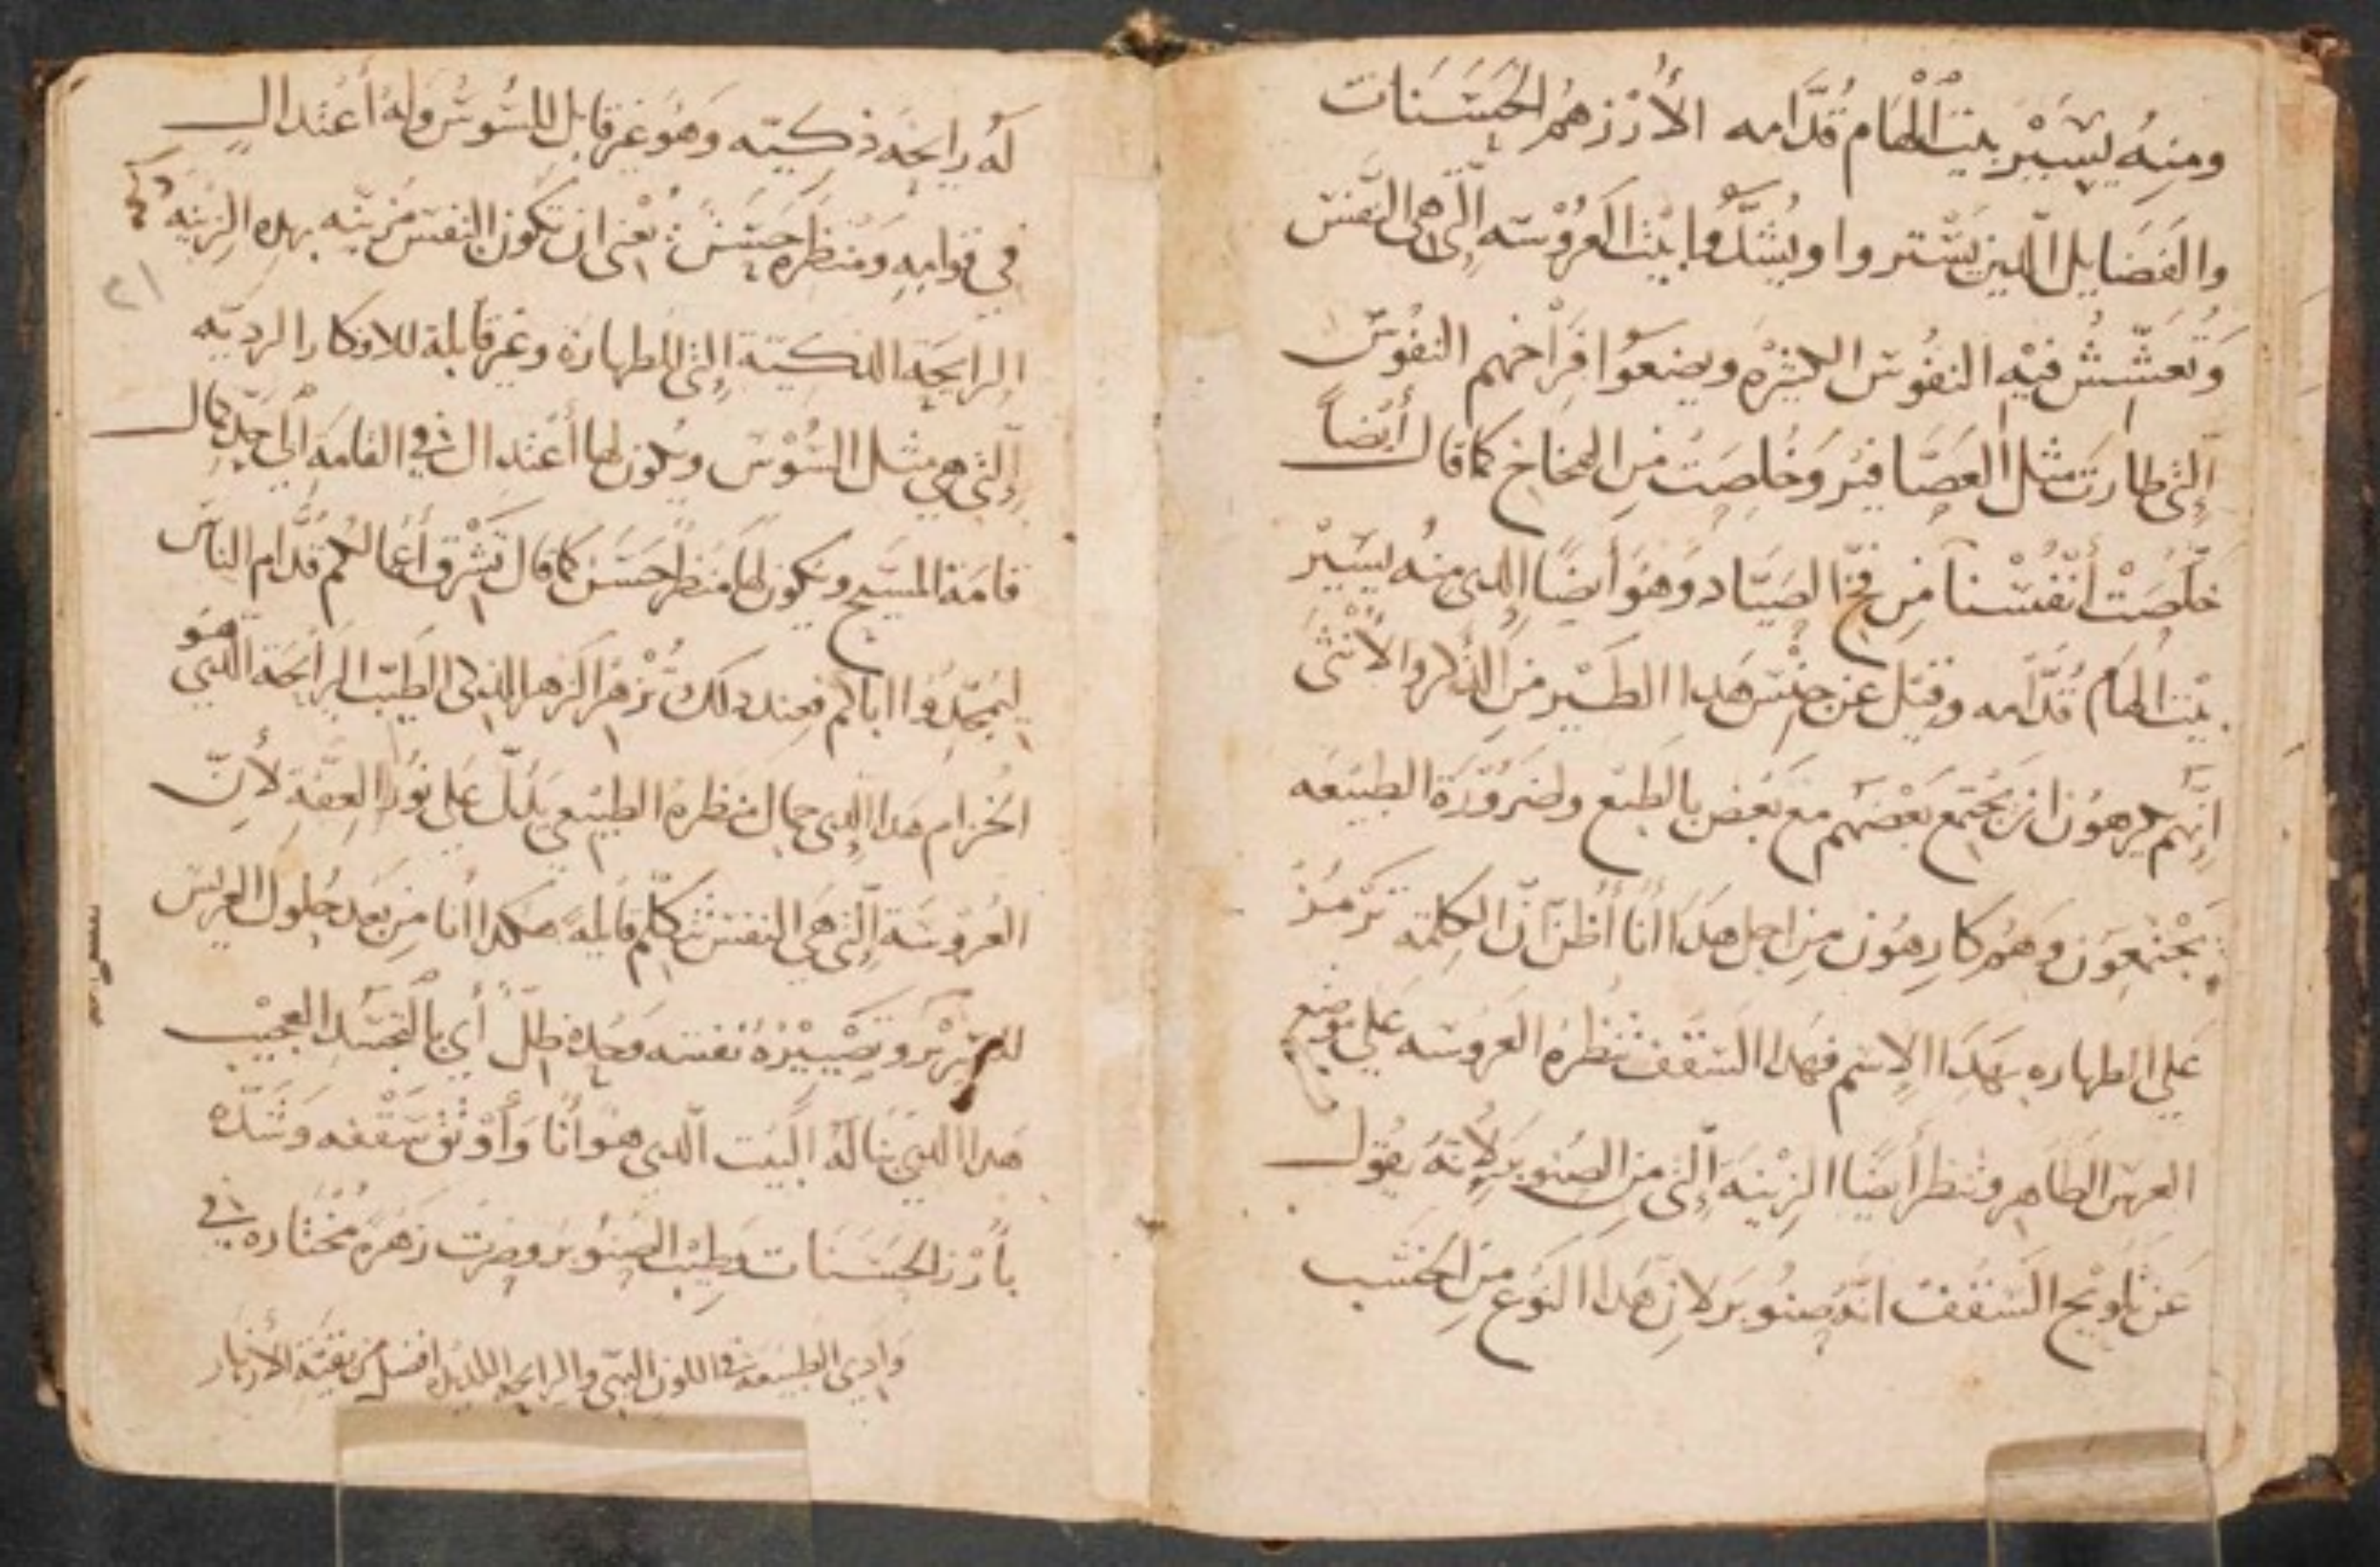 ومنه يسير بيت الهام قدامه الأرز هم الحسنات
والفضايل الدين يستروا ويشدوا بيت العروسه التي هي النفس
وتعشش فيه النفوس الكثيره ويضعوا فراخهم النفوس
التي طارت مثل العصافير وخلصت من الفخاخ كما قال أيضاً
خلصت أنفسنا من فخ الصياد وهو أيضا الدي منه يسير
بيت الهام قدامه وقيل عن جنس هدا الطير من الدكر والأنثى
انهم يكرهون ان يجتمع بعضهم مع بعض بالطبع ولضرورة الطبيعه
يجتمعون وهم كارهون من اجل هدا أنا أظن أن الكلمة ترمز
على الطهاره بهدا الاسم فهدا السقف تنظره العروسه على موضع
العرس الطاهر وتنظر أيضا الزينه التي من الصنوبر لأنه يقول
عن تاويج السقف انه صنوبر لان هدا النوع من الخشب
له رايحه ذكيه وهو غير قابل للسوس وله أعتدال
في قوامه ومنظره حسن يعني ان تكون النفس مزينه بهده الزينه
الرايحة الدكية التي للطهارة وغير قابلة للافكار الرديه
التي هي مثل السوس ويكون لها أعتدال في القامه الى حد كمال
قامة المسيح ويكون لها منظر حسن كما قال تشرق أعمالكم قدام الناس
ليمجدوا اباكم فعند دلك تزهر الزهر الدي الطيب الرايحة الدي هو
الخزام هدا الدي جمال منظره الطبيعي يدل على نور العفة لأن
العروسة التي هي النفس تتكلم قايلة هكدا أنا من بعد حلول العريس
وتصييره نفسه معده ظل أي بالتجسد العجيب
هدا الدي بنا له البيت الدي هو أنا وأوثق سقفه وشده
بأرز الحسنات وطيب الصنوبر وصرت زهرة مختاره في
وادي الطبيعه في اللون البهي والرايحه اللديده افضل من بقية الأزهار